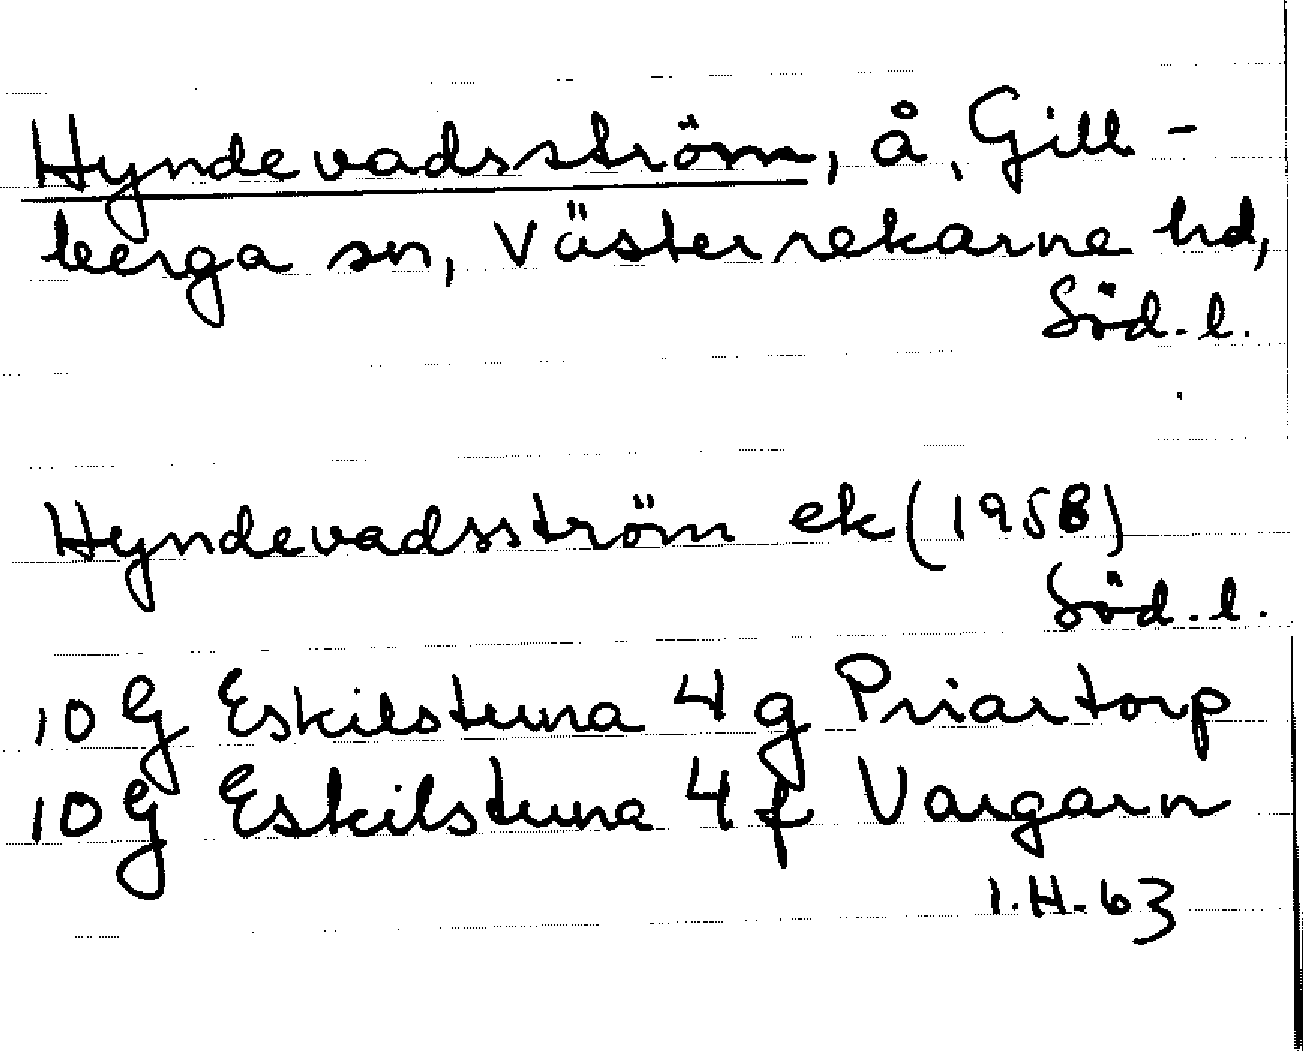 Hyndevadsström, å, Gill-
berga sn, Västerrekarne hd,
Söd. l.
Hyndevadsström ek (1958)
Söd. l.
10 G Eskilstuna 4 g Priartorp
10 G Eskilstuna 4 f Vargarn
I.H-63